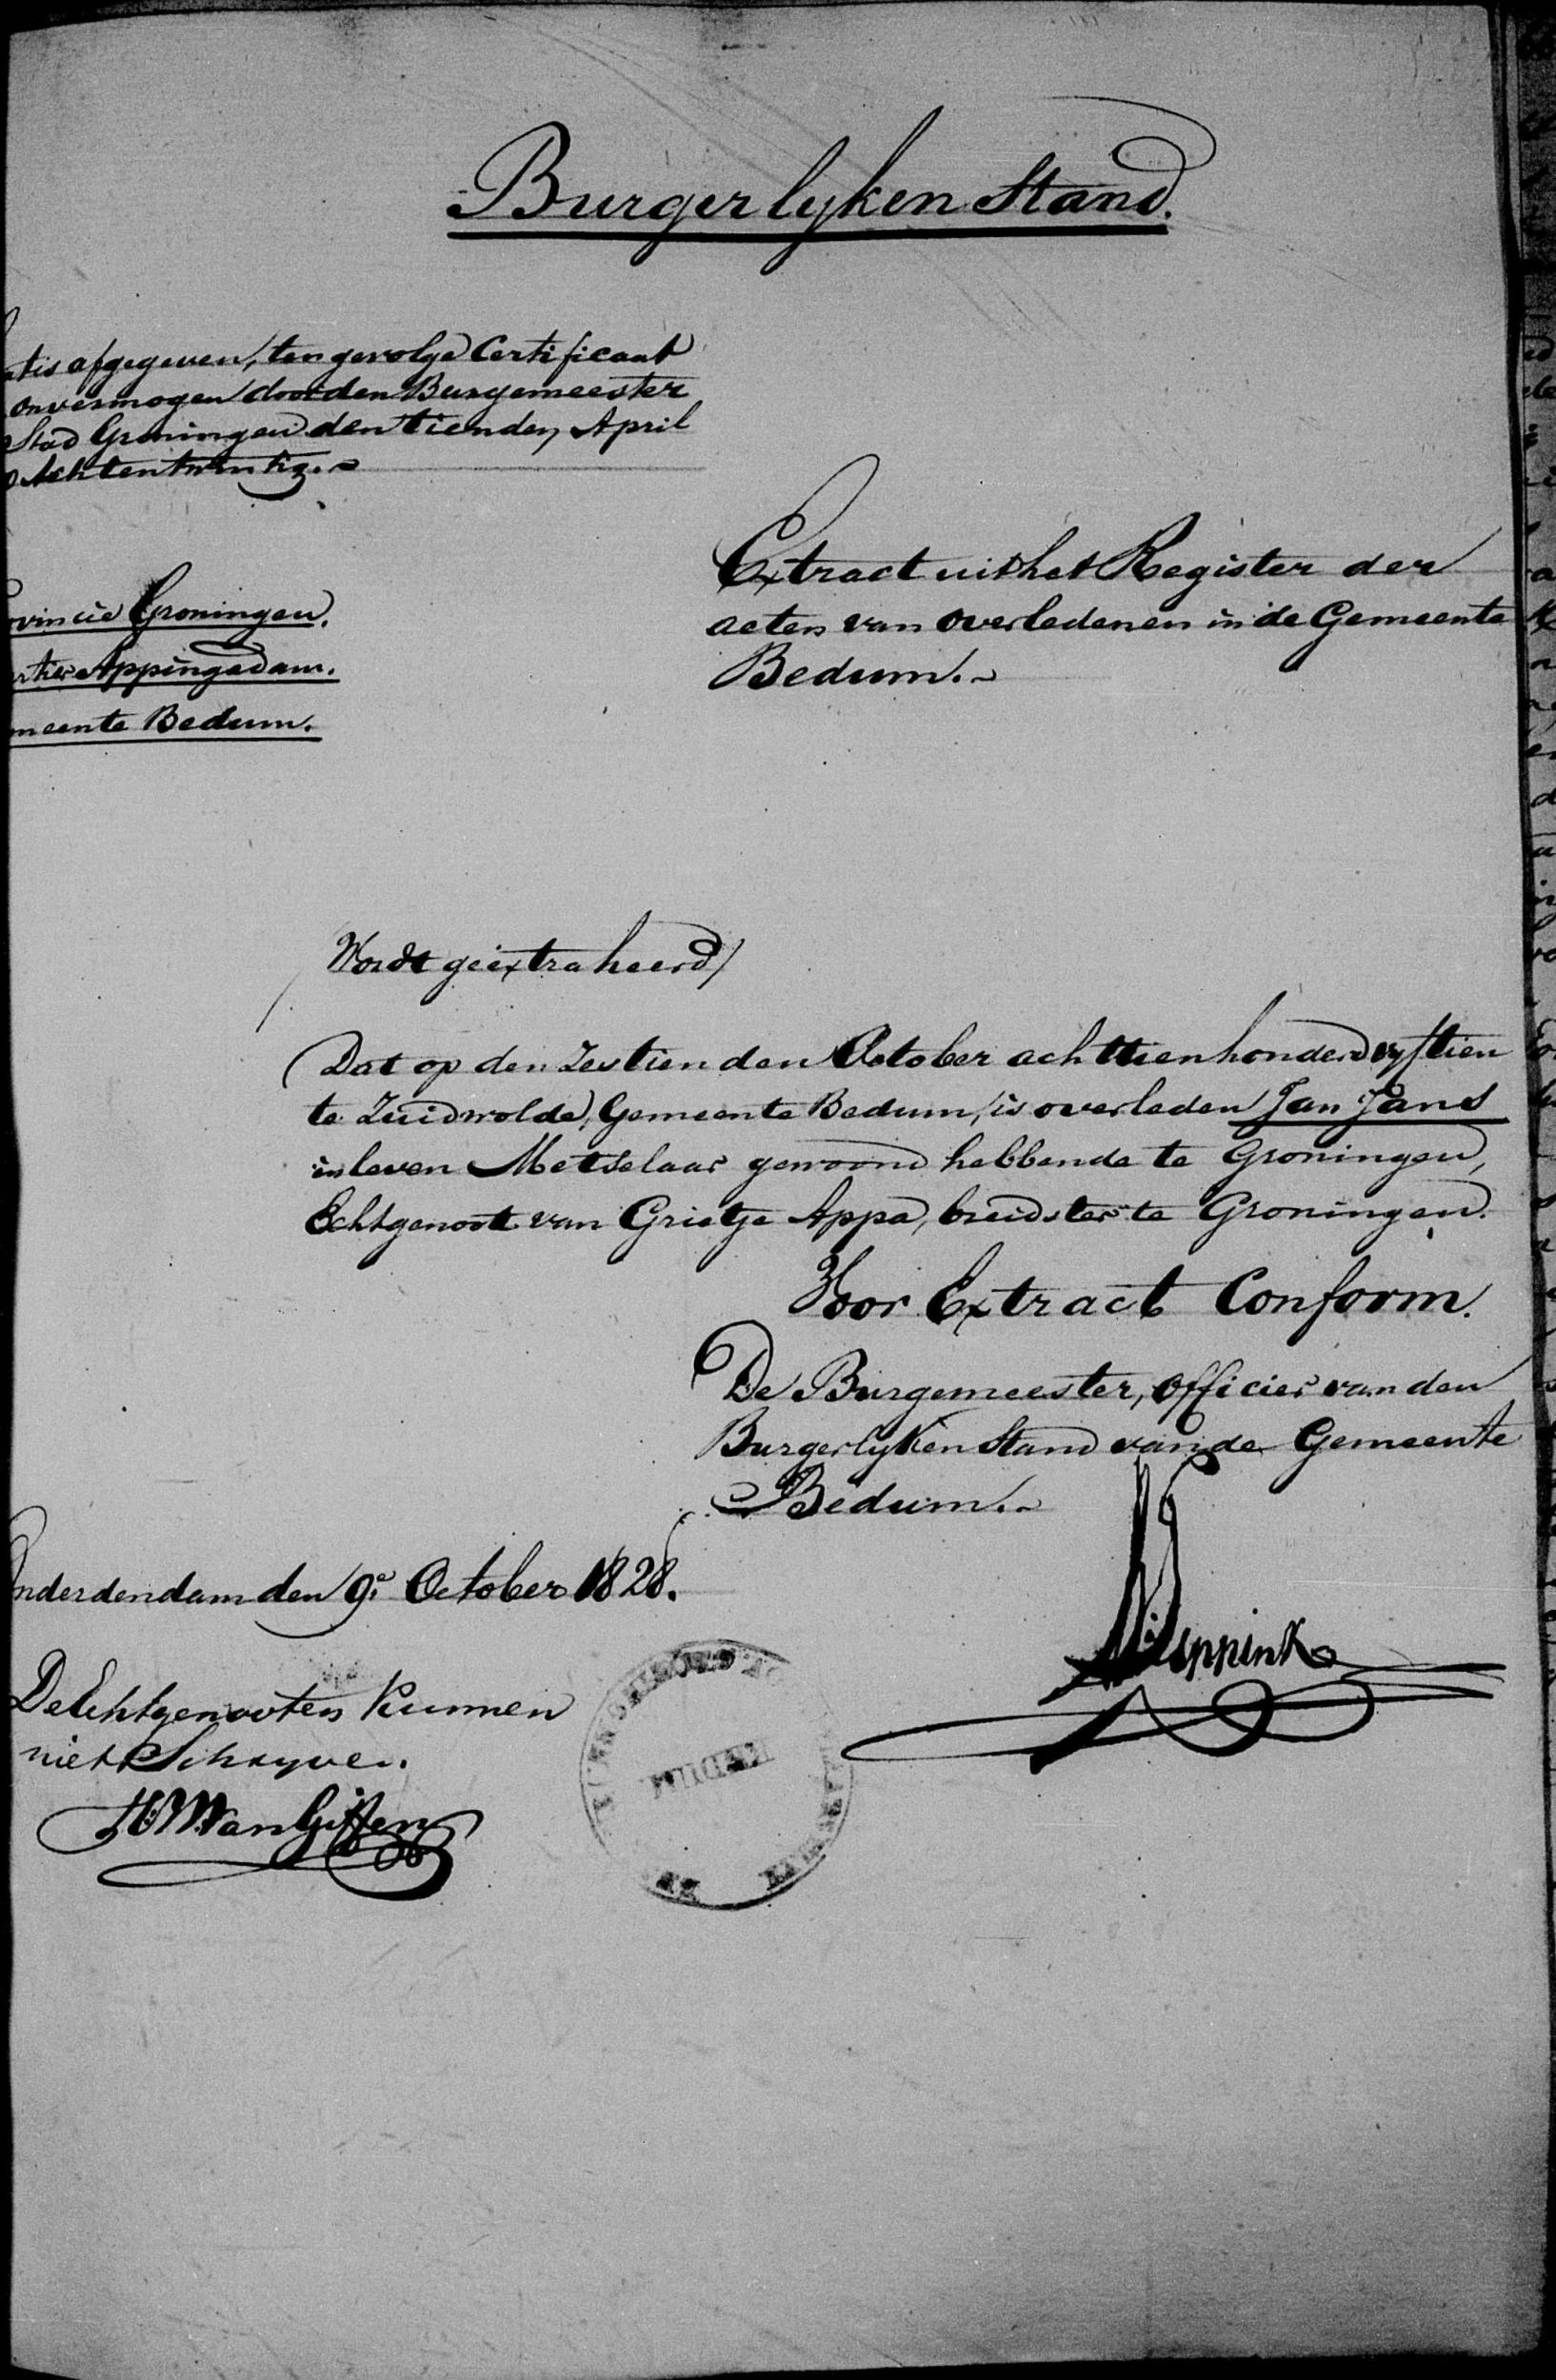 Burgerlyken Stand.
atis afgegeven, ten gevolge Certificaat
onvermogen door den Burgemeester
Stad Groningen den tienden April
Achtentwintig.
ovincie Groningen.
rtier Appingedam.
meente Bedum.
Extract uit het Register der
acten van overledenen in de Gemeente
Bedum.
Wordt geextraheerd
Dat op den Zestienden October achttienhonderd vyftien
te Zuidwolde, Gemeente Bedum, is overleden Jan Jans
in leven Metselaar gewoond hebbende te Groningen,
Echtgenoot van Grietje Appa, breidster te Groningen.
Voor Extract Conform.
De Burgemeester, Officier van den
Burgerlyken Stand van de Gemeente
Bedum.
Onderdendam den 9e October 1828.
De Echtgenooten kunnen
niet Schryven.
van Giffen
BEDUM